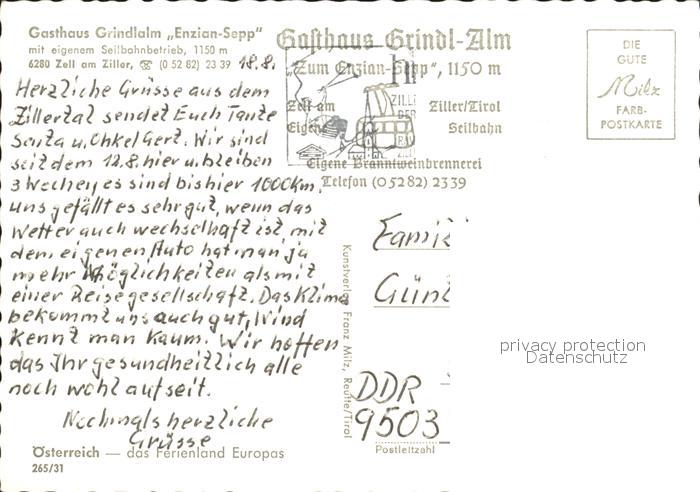 Gasthaus Grindlalm „Enzian-Sepp"
mit eigenem Seilbahnbetrieb, 1150 m
6280 Zell am Ziller, ☎ (0 52 82) 23 39
18.8.
Herzliche Grüsse aus dem
Zillertal sendet Euch Tante
Senta u. Onkel Gert. Wir sind
seit dem 12.8. hier u. bleiben
3 Wochen, es sind bis hier 1000 km.
Uns gefällt es sehr gut, wenn das
Wetter auch wechselhaft ist, mit
dem eigenen Auto hat man ja
mehr Möglichkeiten als mit
einer Reisegesellschaft. Das Klima
bekommt uns auch gut, Wind
kennt man kaum. Wir hoffen
das Ihr gesundheitlich alle
noch wohl auf seit.
Nochmals herzliche
Grüsse
Österreich — das Ferienland Europas
265/31
Gasthaus Grindl-Alm
„Zum Enzian-Sepp", 1150 m
Zell am Ziller/Tirol
Eigene Seilbahn
Eigene Branntweinbrennerei
Telefon (0 52 82) 23 39
DIE
GUTE
Milz
FARB-
POSTKARTE
Kunstverlag Franz Milz, Reutte/Tirol
Famil
Günt
DDR
9503
Postleitzahl
privacy protection
Datenschutz